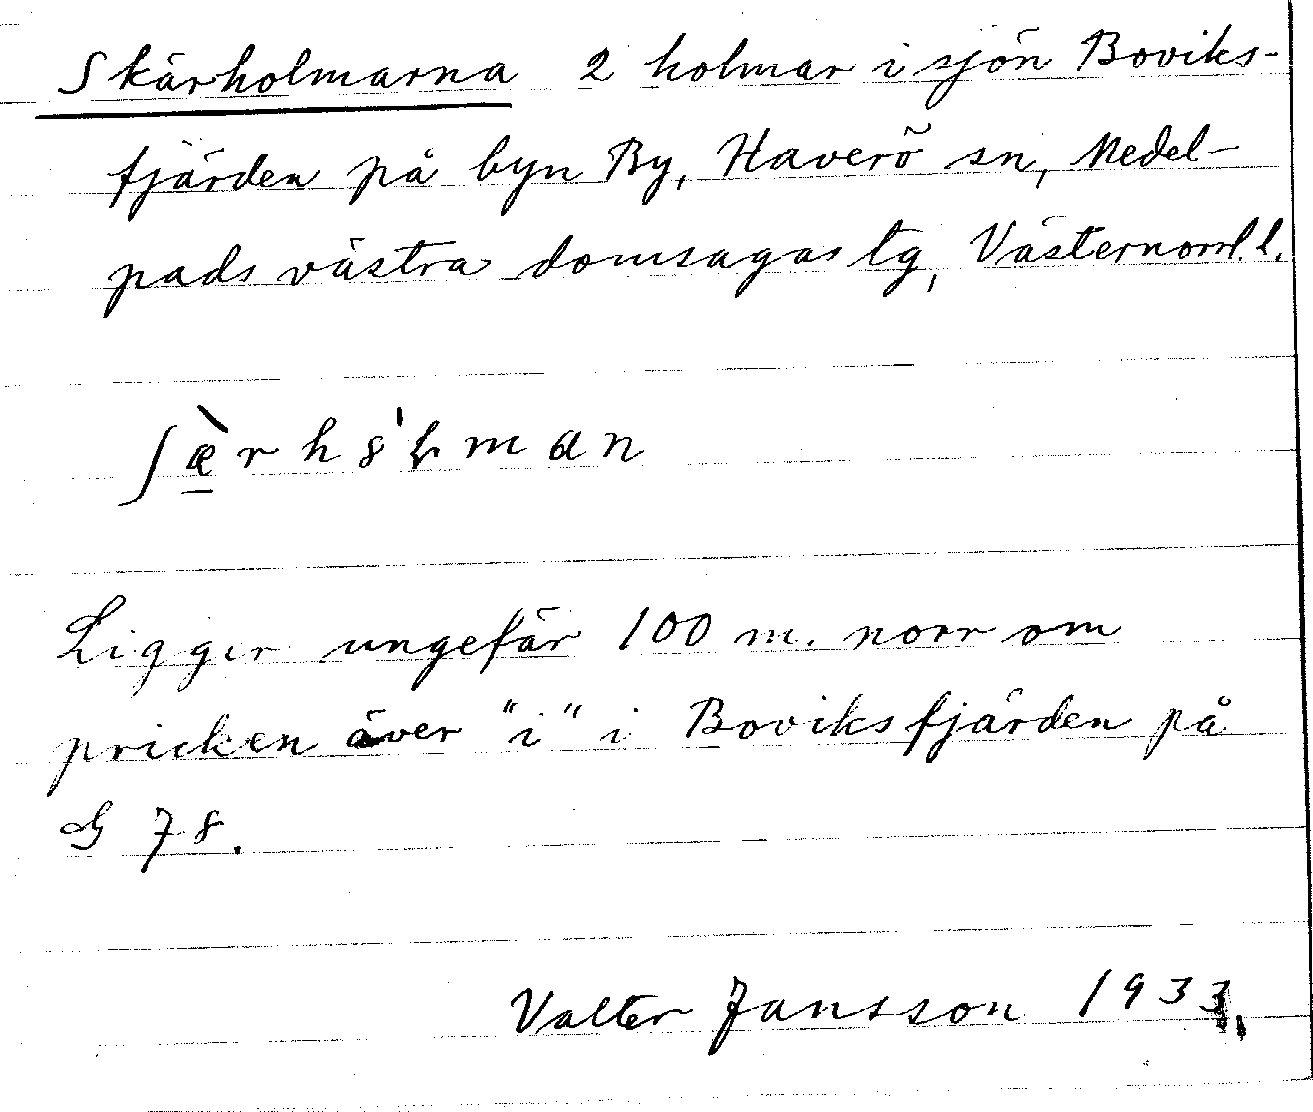 Skärholmarna 2 holmar i sjön Boviks-
fjärden på byn By, Haverö sn, Medel-
pads västra domsagas tg, Västernorrl. l.
Ligger ungefär 100 m. norr om
pricken över "i" i Boviksfjärden på
G 78.
Valter Jansson 1933.